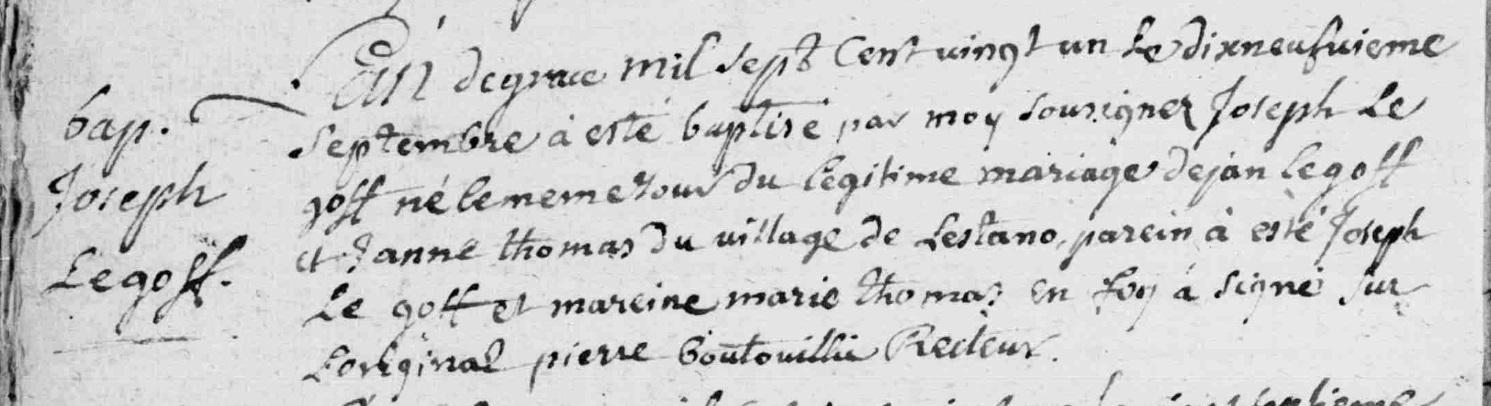 bap.
Joseph
Le goff.
L'an de grace mil sept Cent vingt un Le dixneufvieme
Septembre à esté baptisé par moy sousigner Joseph Le
goff né le meme jour du legitime mariage de jan le goff
et Janne thomas du village de Lestano, parein à esté Joseph
Le goff et mareine marie thomas en foy á signé sur
L'original pierre boutouillic Recteur.